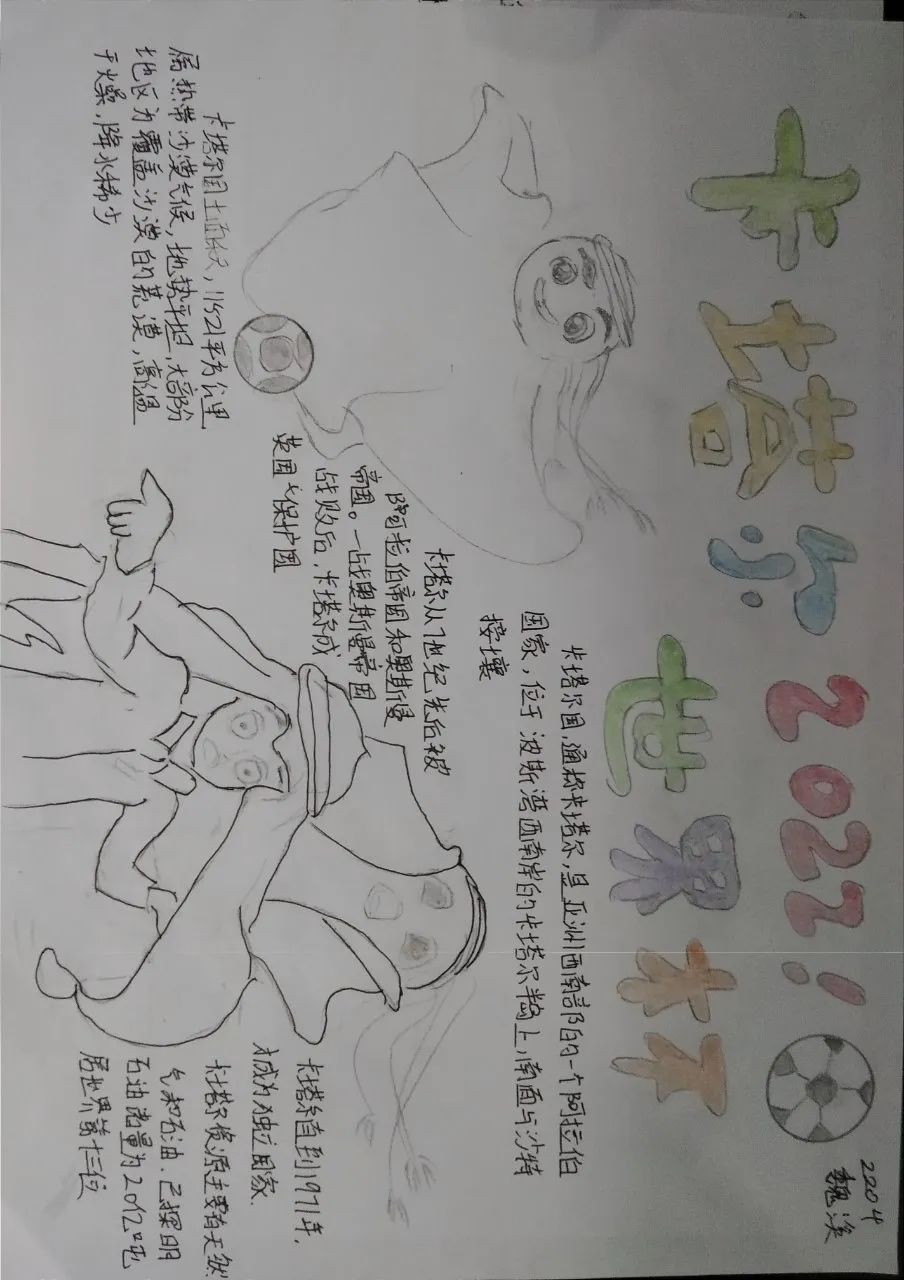 卡塔尔2022!
世界杯
2204
魏溪
卡塔尔国,通称卡塔尔,是亚洲西南部的一个阿拉伯
国家,位于波斯湾西南岸的卡塔尔半岛上,南面与沙特
接壤
卡塔尔从7世纪先后被
阿拉伯帝国和奥斯曼
帝国。一战奥斯曼帝国
战败后,卡塔尔成
英国 保护国
卡塔尔国土面积,11521平方公里
属热带沙漠气候,地势平坦,大部份
地区为覆盖沙漠的荒漠,高温
干燥,降水稀少
卡塔尔直到1971年,
才成为独立国家.
卡塔尔资源主要有天然
气和石油.已探明
石油诸量为20亿吨
居世界第十三位